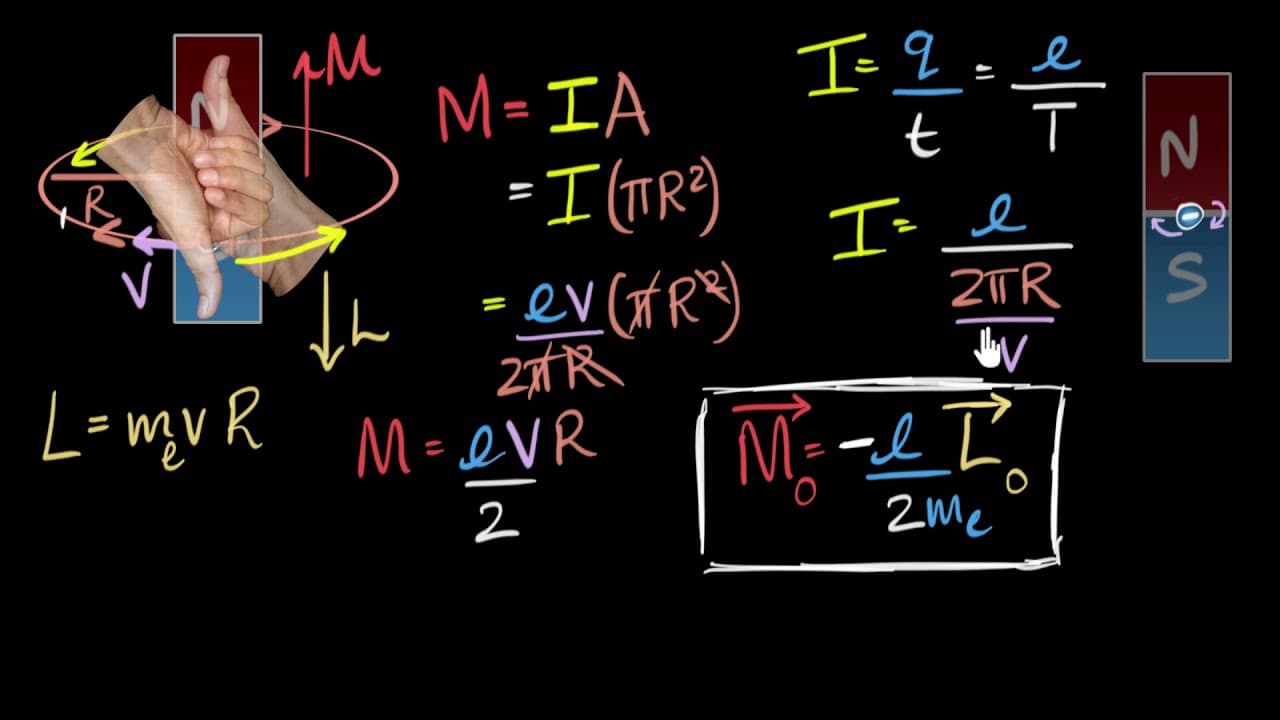 N
M
R
V
L
L = mₑvR
M = IA
= I(πR²)
= ev/2πR (πR²)
M = eVR/2
I = q/t = e/T
I = e/(2πR/V)
M⃗₀ = -e/2mₑ L⃗₀
N
S